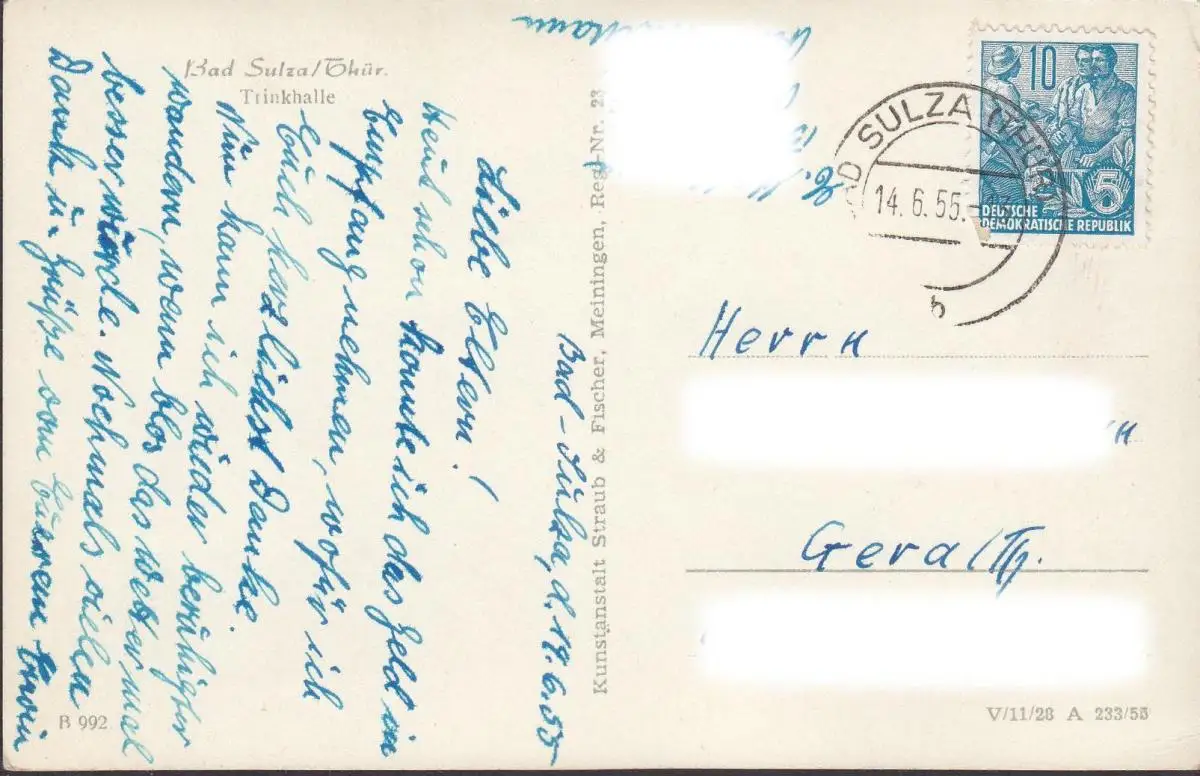 Bad Sulza/Thür.
Trinkhalle
Bad-Sulza, d. 14.6.55
Liebe Eltern!
Heut schon konnte ich das Geld in
Empfang nehmen, wofür ich
Euch herzlichst Danke.
Nun kann ich wieder beruhigter
wandern, wenn blos das Wetter mal
besser würde. Nochmals vielen
Dank u. Grüße von Eurem Erwin
B 992
Kunstanstalt Straub & Fischer, Meiningen, Reg.-Nr. 23
BAD SULZA (THÜR)
14.6.55.
b
10
5
DEUTSCHE
DEMOKRATISCHE REPUBLIK
Herrn
Gera/Th.
V/11/28 A 233/55